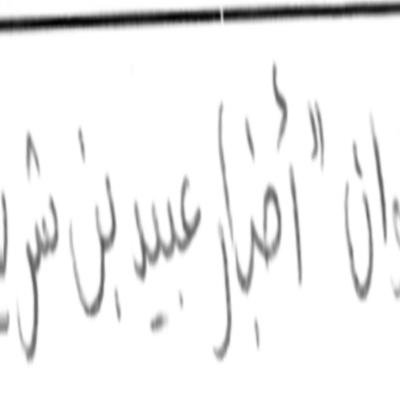 وان "أخبار عبيد بن شر